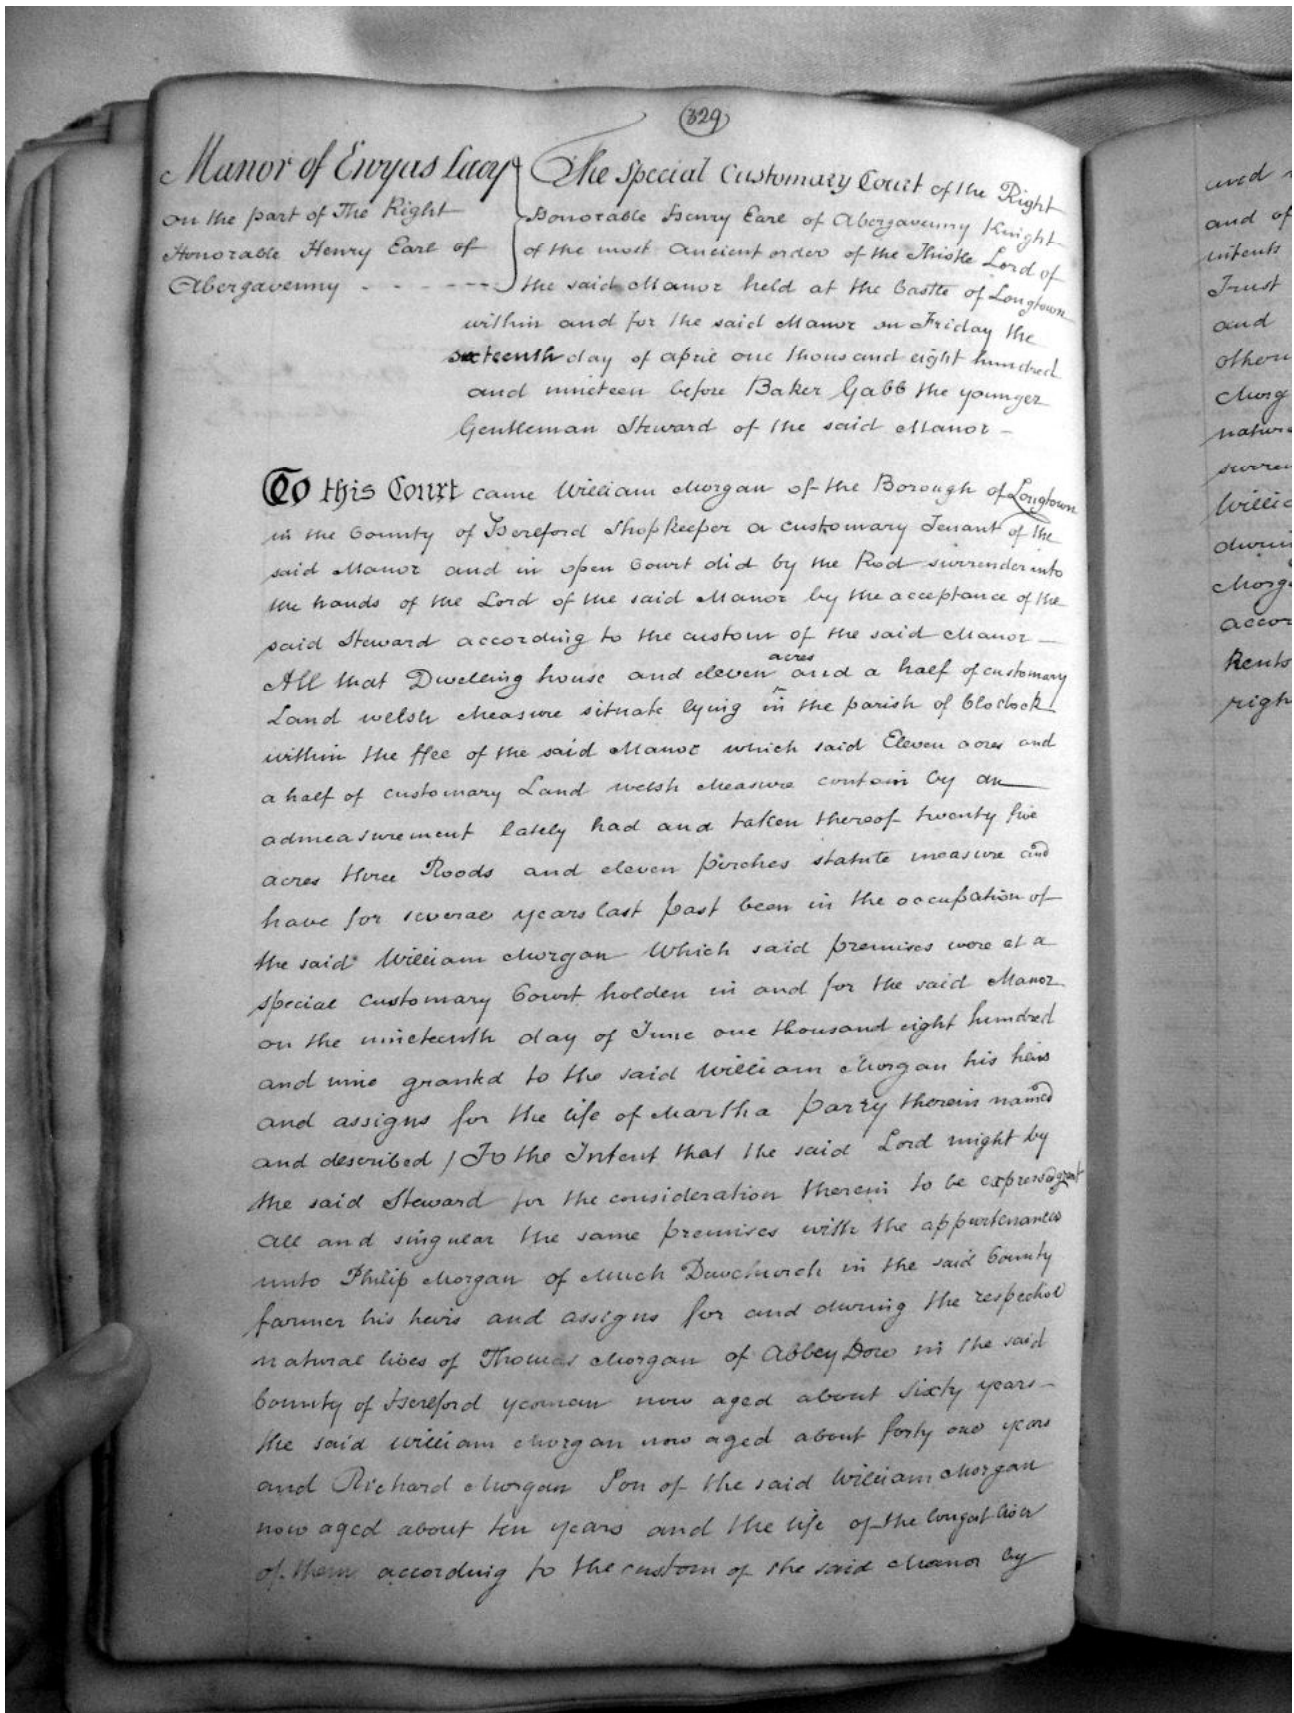 329
Manor of Ewyas Lacy
on the part of The Right
Honorable Henry Earl of
Abergavenny - - - - - -
The Special Customary Court of the Right
Honorable Henry Earl of Abergavenny Knight
of the most Ancient order of the Thistle Lord of
the said Manor held at the Castle of Longtown
within and for the said Manor on Friday the
sixteenth day of April one thousand eight hundred
and nineteen before Baker Gabb the younger
Gentleman Steward of the said Manor -
To this Court came William Morgan of the Borough of Longtown
in the County of Hereford Shopkeeper a customary Tenant of the
said Manor and in open Court did by the Rod surrender into
the hands of the Lord of the said Manor by the acceptance of the
said Steward according to the custom of the said Manor -
All that Dwelling house and eleven acres and a half of customary
Land welsh Measure situate lying in the parish of Clodock
within the ffee of the said Manor which said Eleven acres and
a half of customary Land welsh Measure contain by an
admeasurement lately had and taken thereof twenty five
acres three Roods and eleven pirches statute measure and
have for several years last past been in the occupation of
the said William Morgan Which said premises were at a
special customary Court holden in and for the said Manor
on the nineteenth day of June one thousand eight hundred
and nine granted to the said William Morgan his heirs
and assigns for the life of Martha Parry therein named
and described / To the Intent that the said Lord might by
the said Steward for the consideration therein to be expressed grant
all and singular the same premises with the appurtenances
unto Philip Morgan of Much Dewchurch in the said County
farmer his heirs and assigns for and during the respective
natural lives of Thomas Morgan of Abbey Dore in the said
County of Hereford yeoman now aged about sixty years -
the said William Morgan now aged about forty one years
and Richard Morgan Son of the said William Morgan
now aged about ten years and the life of the longest liver
of them according to the custom of the said Manor by
and of
intents
Trust
and
Morg
natur
surren
Willia
Morga
accor
Rents
righ